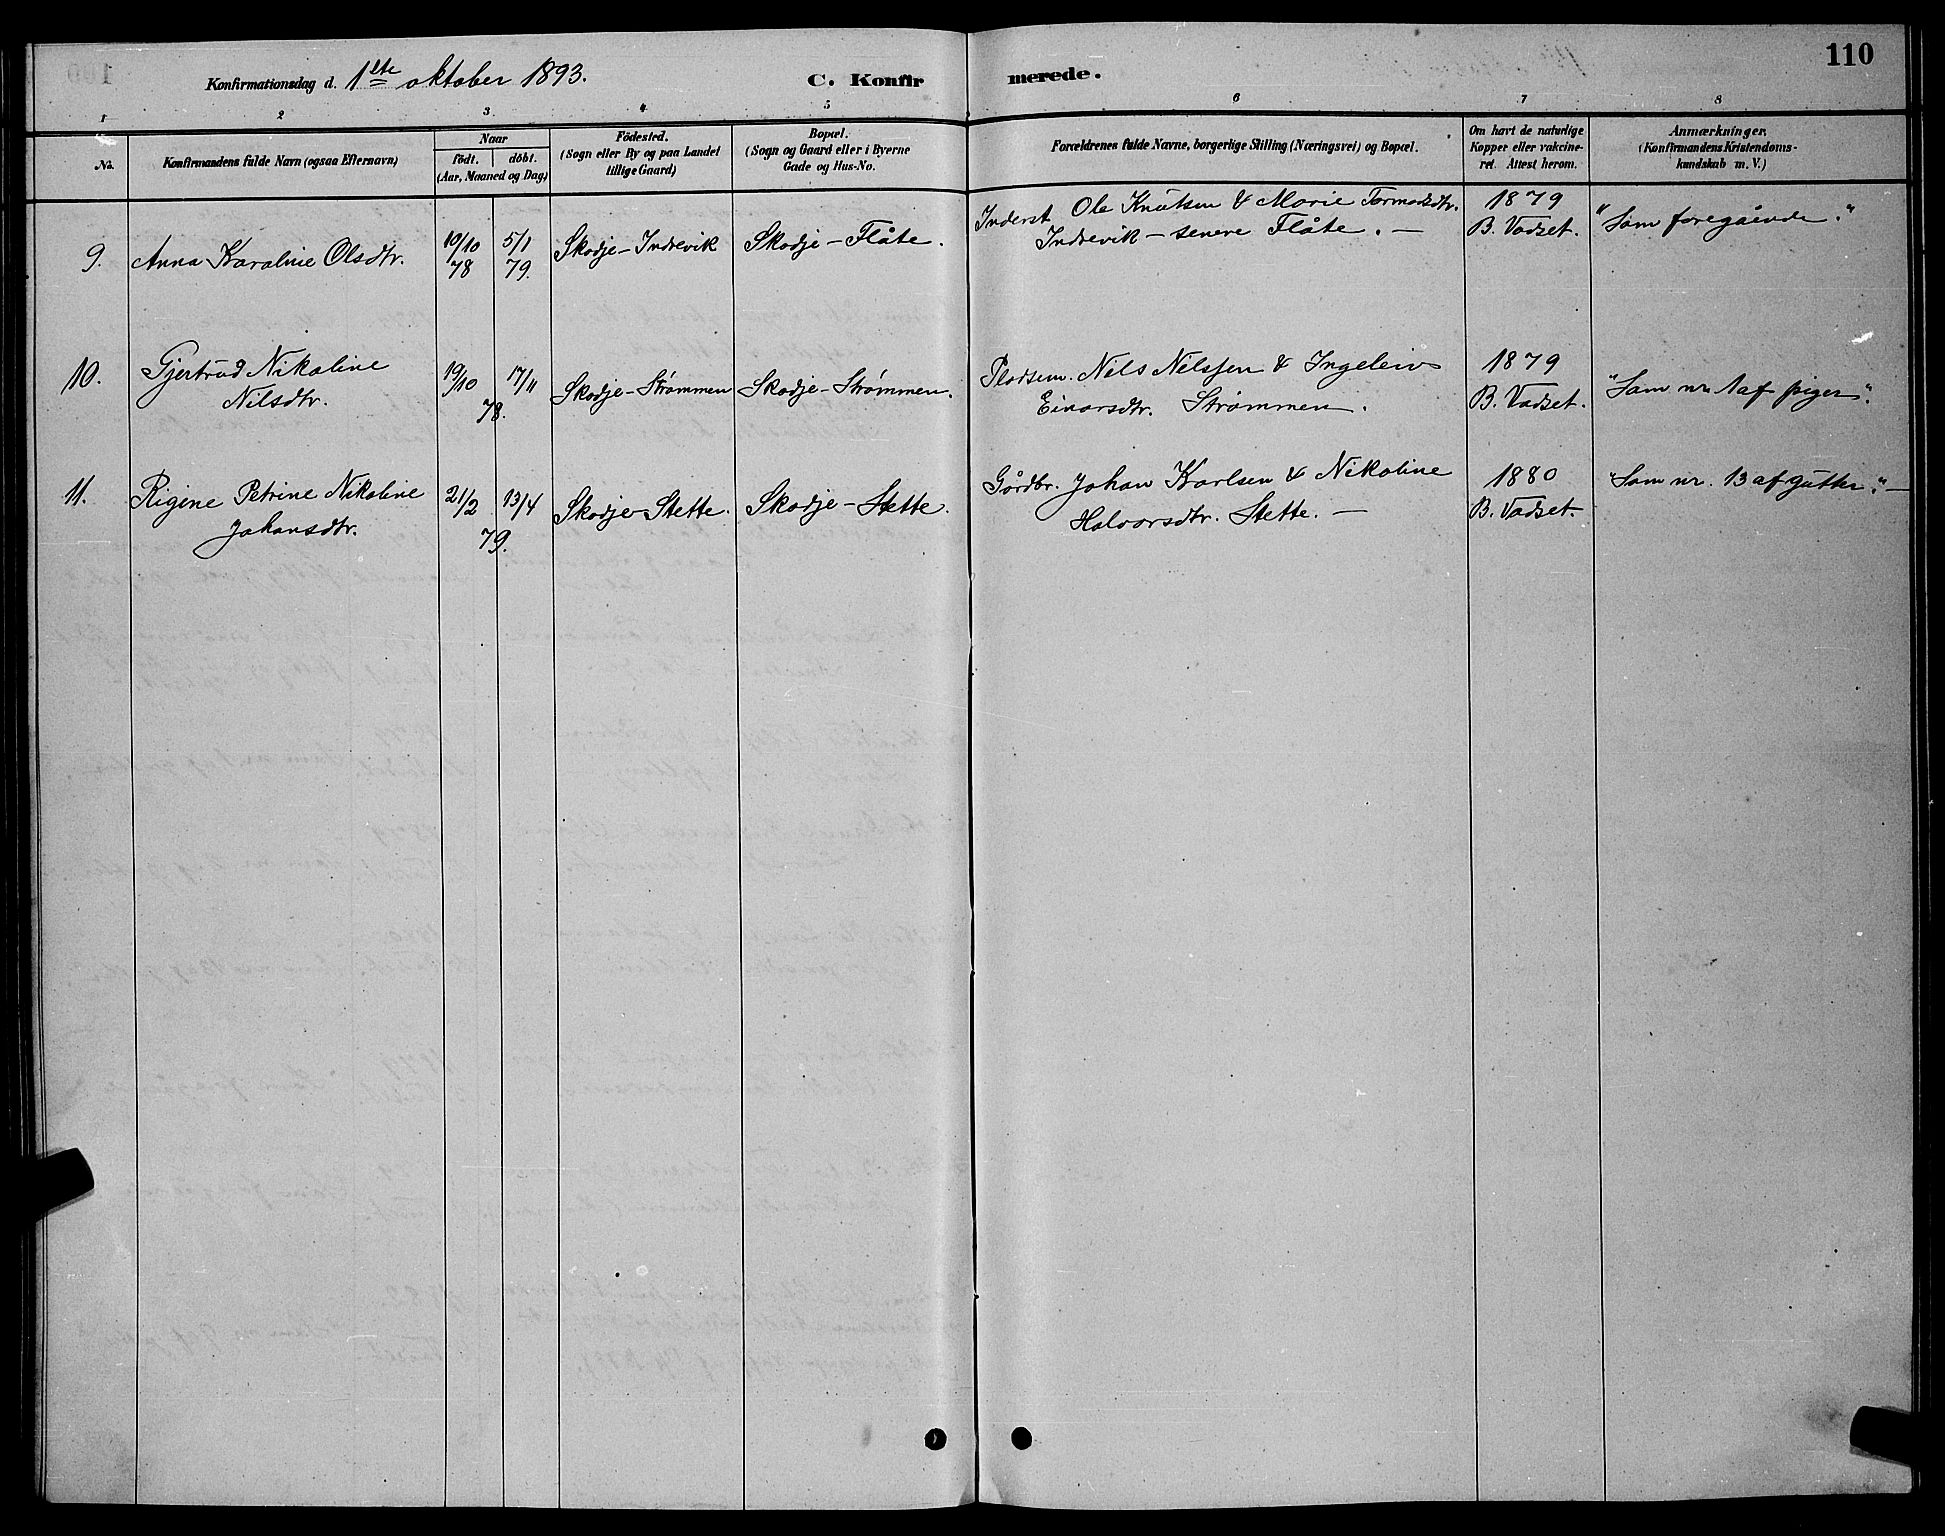 110
Konfirmationsdag d. 1ste oktober 1893. C. Konfir merede.
1 2 3 4 5 6 7 8
No. Konfirmandens fulde Navn (ogsaa Efternavn)
Naar
födt. döbt.
(Aar, Maaned og Dag)
Födested.
(Sogn eller By og paa Landet
tillige Gaard)
Bopæl.
(Sogn og Gaard eller i Byerne
Gade og Hus-No.
Forældrenes fulde Navne, borgerlige Stilling (Næringsvei) og Bopæl.
Om havt de naturlige
Kopper eller vakcine-
ret. Attest herom.
Anmærkninger.
(Konfirmandens Kristendoms-
kundskab m. V.)
9. Anna Karoline Olsdtr.
10/10 5/1
78 79.
Skodje-Indrevik
Skodje-Flåte.
Inderst Ole Knutsen & Marie Tormodsdtr.
Indrevik - senere Flåte. -
1879
B. Vadset.
"Som foregående."
10. Gjertrud Nikoline
Nilsdtr.
19/10 17/11
78.
Skodje-Strømmen
Skodje-Strømmen.
Pladsem. Nils Nilssen & Ingeleiv
Einarsdtr. Strømmen.
1879
B. Vadset.
"Som nr 1 af piger".
11. Rigine Petrine Nikoline
Johansdtr.
21/2 13/4
79.
Skodje-Stette.
Skodje-Stette.
Gårdbr. Johan Karlsen & Nikoline
Halvorsdtr. Stette. -
1880
B. Vadset.
"Som nr. 13 af gutter". -